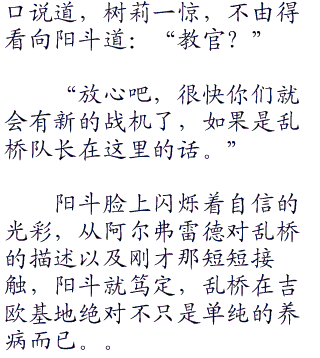 口说道，树莉一惊，不由得
看向阳斗道：“教官？”
“放心吧，很快你们就
会有新的战机了，如果是乱
桥队长在这里的话。”
阳斗脸上闪烁着自信的
光彩，从阿尔弗雷德对乱桥
的描述以及刚才那短短接
触，阳斗就笃定，乱桥在吉
欧基地绝对不只是单纯的养
病而已。。